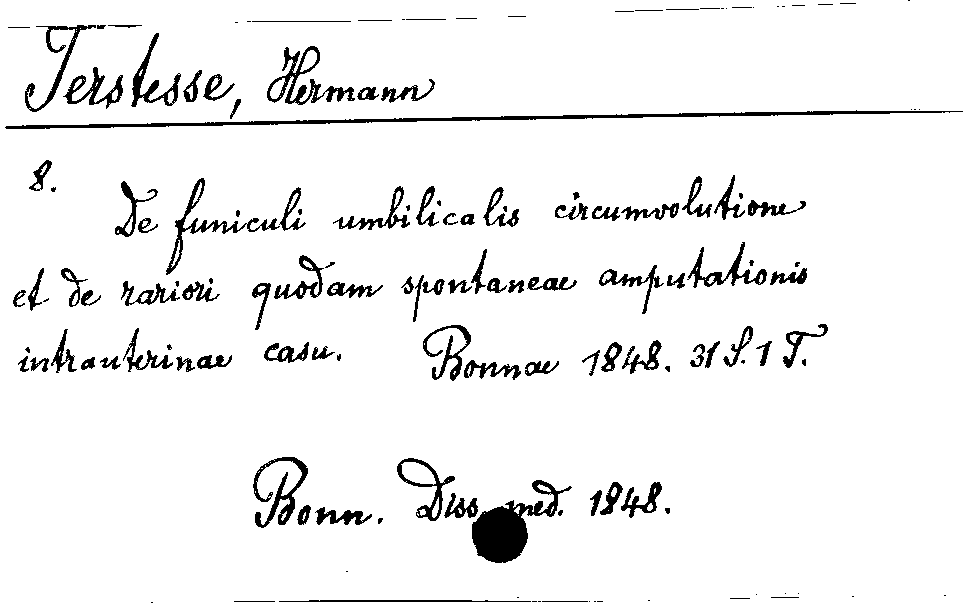 Terstesse, Hermann
8.
De funiculi umbilicalis circumvolutione
et de rariori quodam spontaneae amputationis
intrauterinae casu. Bonnae 1848. 31 S. 1 T.
Bonn. Diss. med. 1848.